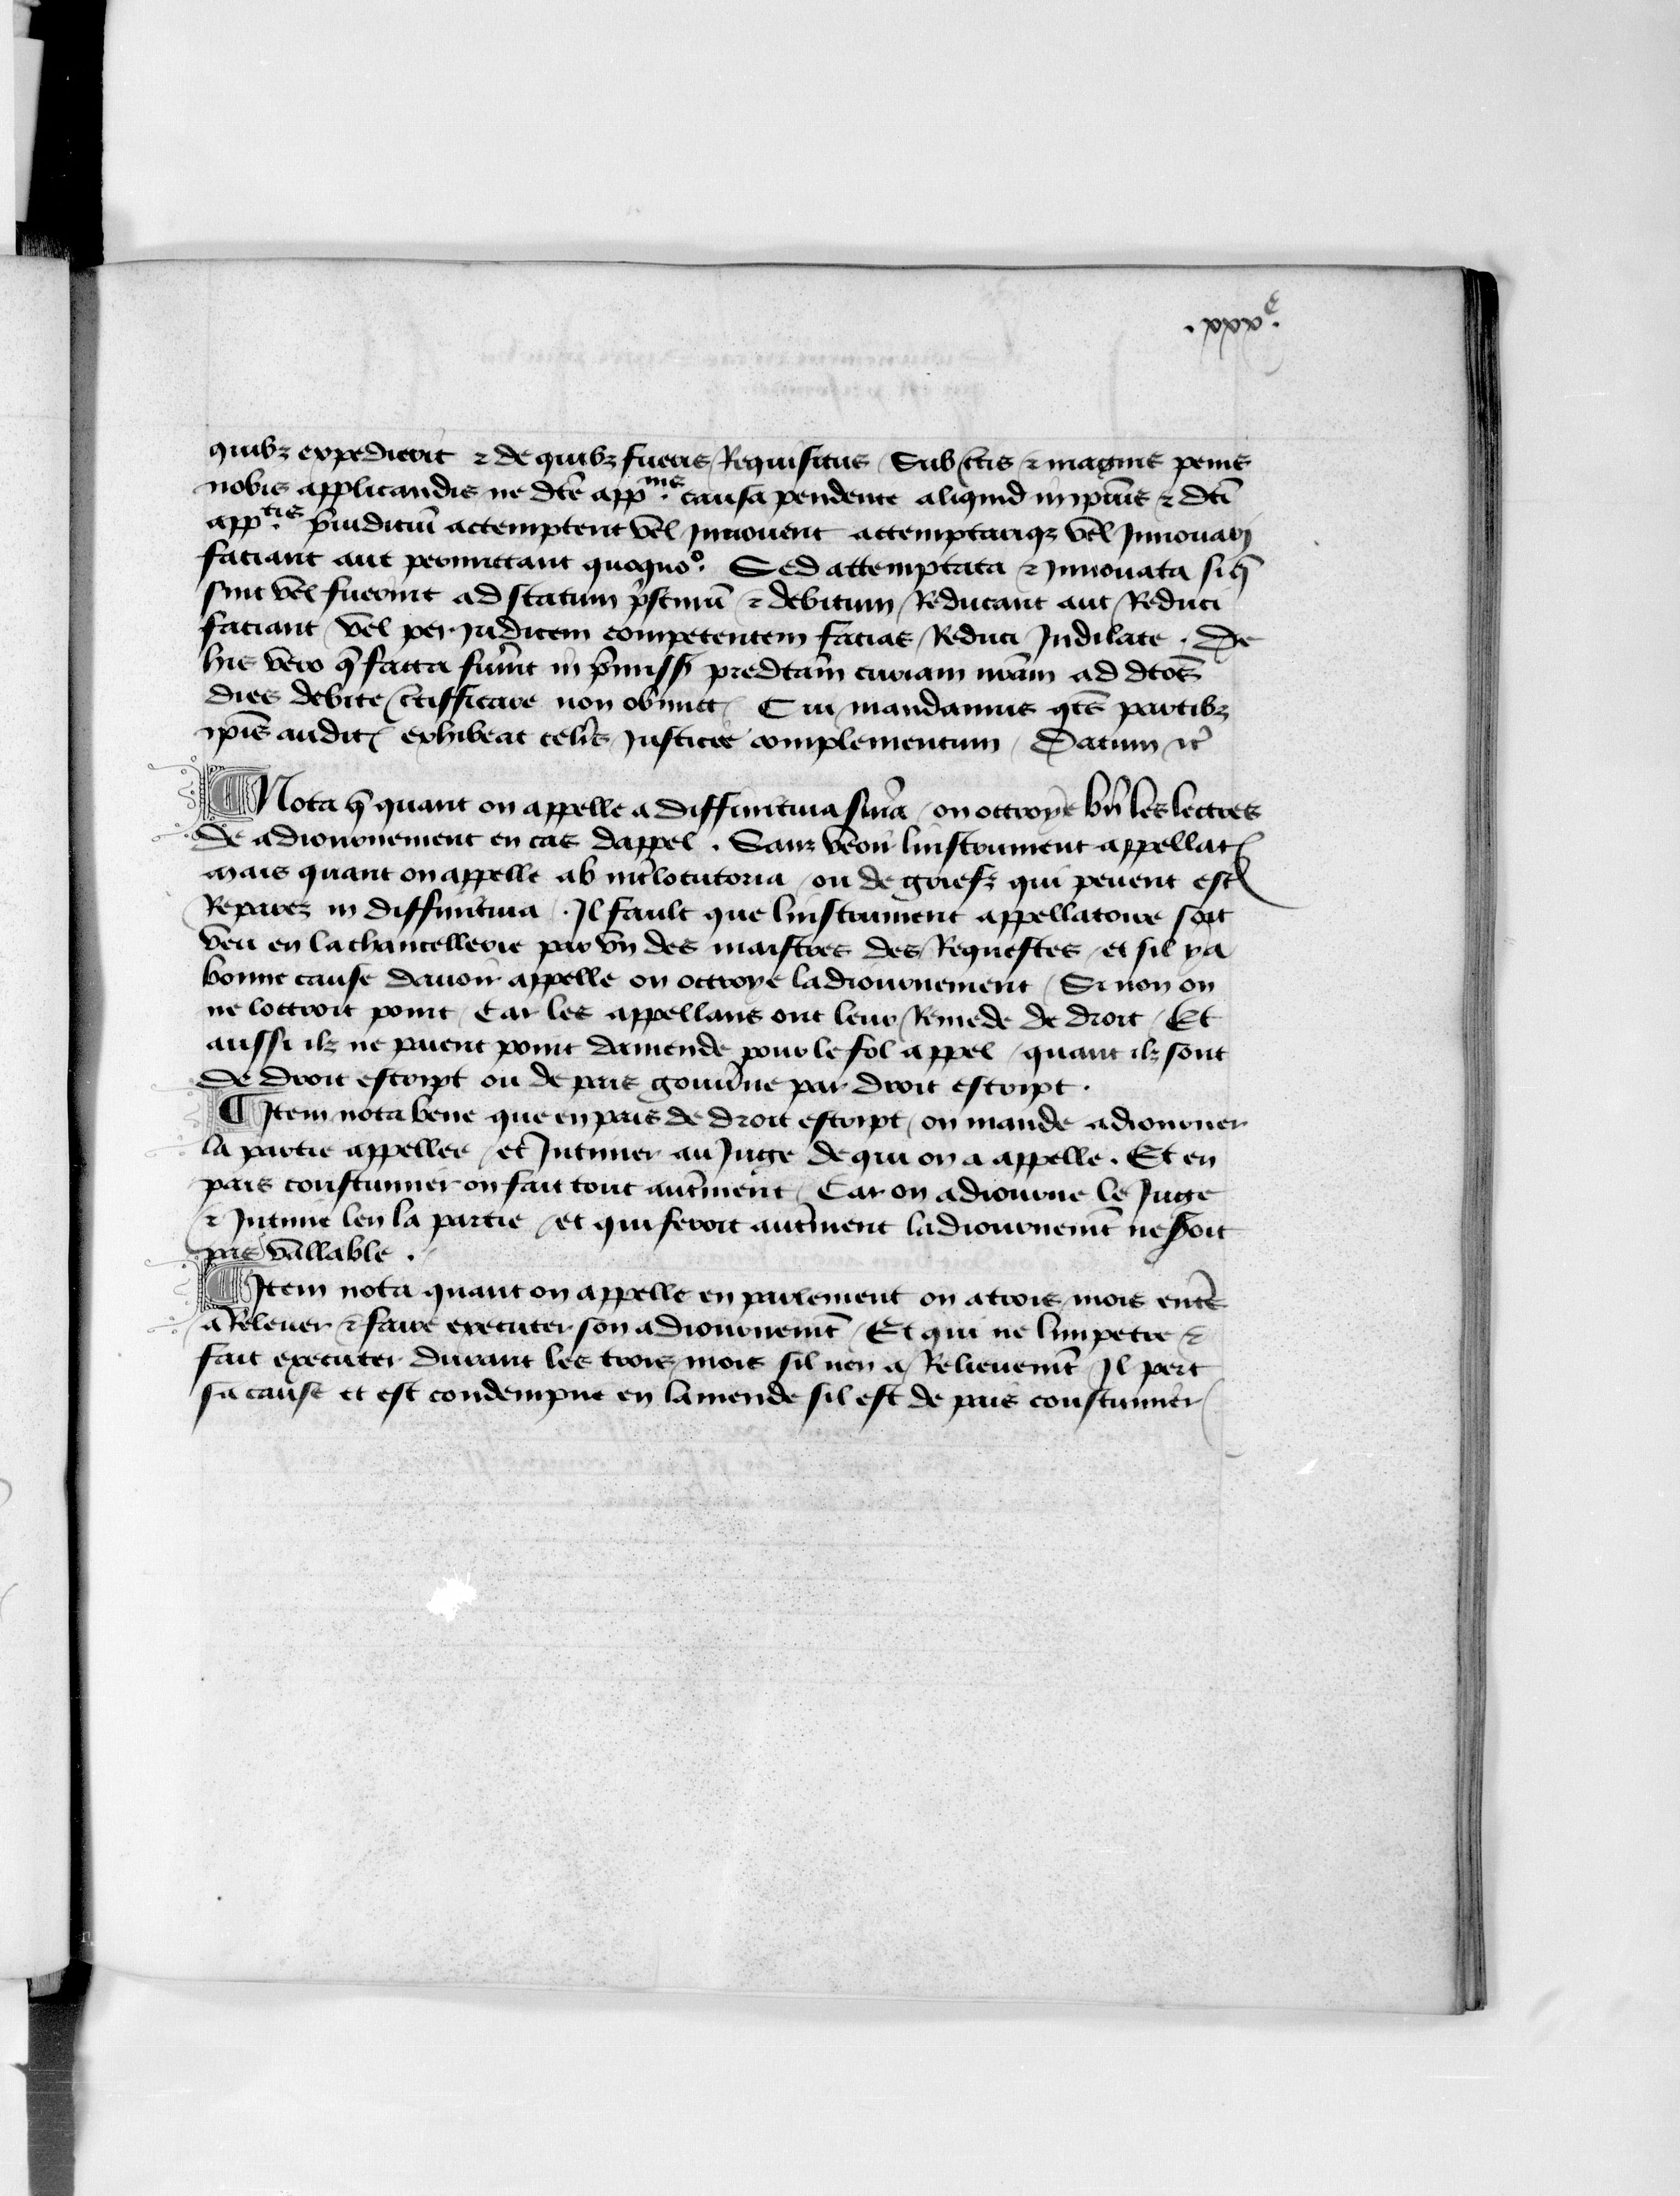 .xxx.
quibz expedierit ⁊ de quibz fueris Requisitus Sub ctis ⁊ magnis penis
nobis applicandis ne dte app.nis causa pendente aliquid in ipius ⁊ dti
app.tis p̄iudiciū actemptent vel Innouent actemptariqz vel Innouarj
faciant aut permittant quoquo.o Sed attemptata ⁊ Innouata si q̄
sint vel fuerint ad statum pr̄stinū ⁊ debitum Reducant aut Reduci
faciant vel per Judicem competentem facias Reduci Indilate . De
his vero q̄ facta fūint in p̄miss predtam curiam nrām ad dtos
dies debite c̄tifficare non obmict Cui mandamus qts partibz
ip̄is audit exhibeat celis Justicie complementum Datum ⁊c
¶ Nota q̄ quant on appelle a diffinitiua sn̄ia on octroye bn̄ les lectres
de adiournement en cas dappel . Sanz veoir linstrument appellat
mais quant on appelle ab int̄locutoria ou de griefz qui peuent est
Reparez in diffinitiua . Il fault que linstrument appellatoire soit
veu en la chancellerie par vn des maistres des Requestes et sil ya
bonne cause dauoir appelle on octroye ladiournement Si non on
ne loctroit point Car les appellans ont leur Remede de droit Et
aussi ilz ne paient point damende pour le fol appel quant ilz sont
de droit escript ou de pais gouu̅ne par droit escript .
¶ Item nota bene que en pais de droit escript on mande adiourner
la partie appellee et Intimer au Juge de qui on a appelle . Et en
pais coustumier on fait tout aut̄ment Car on adiourne le Juge
⁊ Intime len la partie et qui feroit aut̄ment ladiournemt̄ ne s̄oit
pas vallable .
¶ Item nota quant on appelle en parlement on a trois mois entr̄s
a Releuer ⁊ faire executer son adiournemt̄ Et qui ne limpetre ⁊
fait executer durant les trois mois sil nen a Relieuemt̄ Il pert
sa cause et est condempne en lamende sil est de pais coustumier